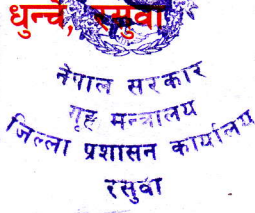 धुन्चे, रसुवा
नेपाल सरकार
गृह मन्त्रालय
जिल्ला प्रशासन कार्यालय
रसुवा